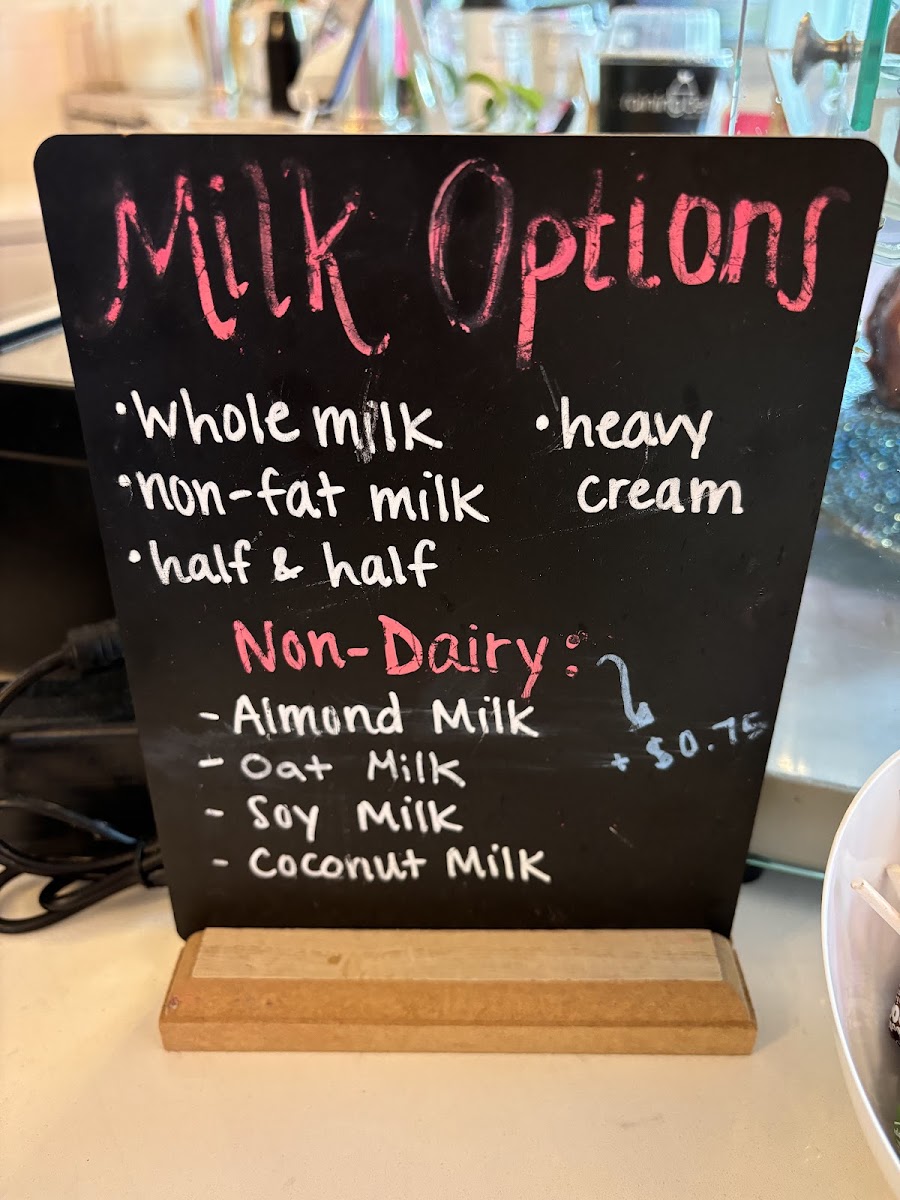 Milk Options
• whole milk
• non-fat milk
• half & half
• heavy
cream
Non-Dairy:
+ $0.75
- Almond Milk
- Oat Milk
- Soy Milk
- Coconut Milk